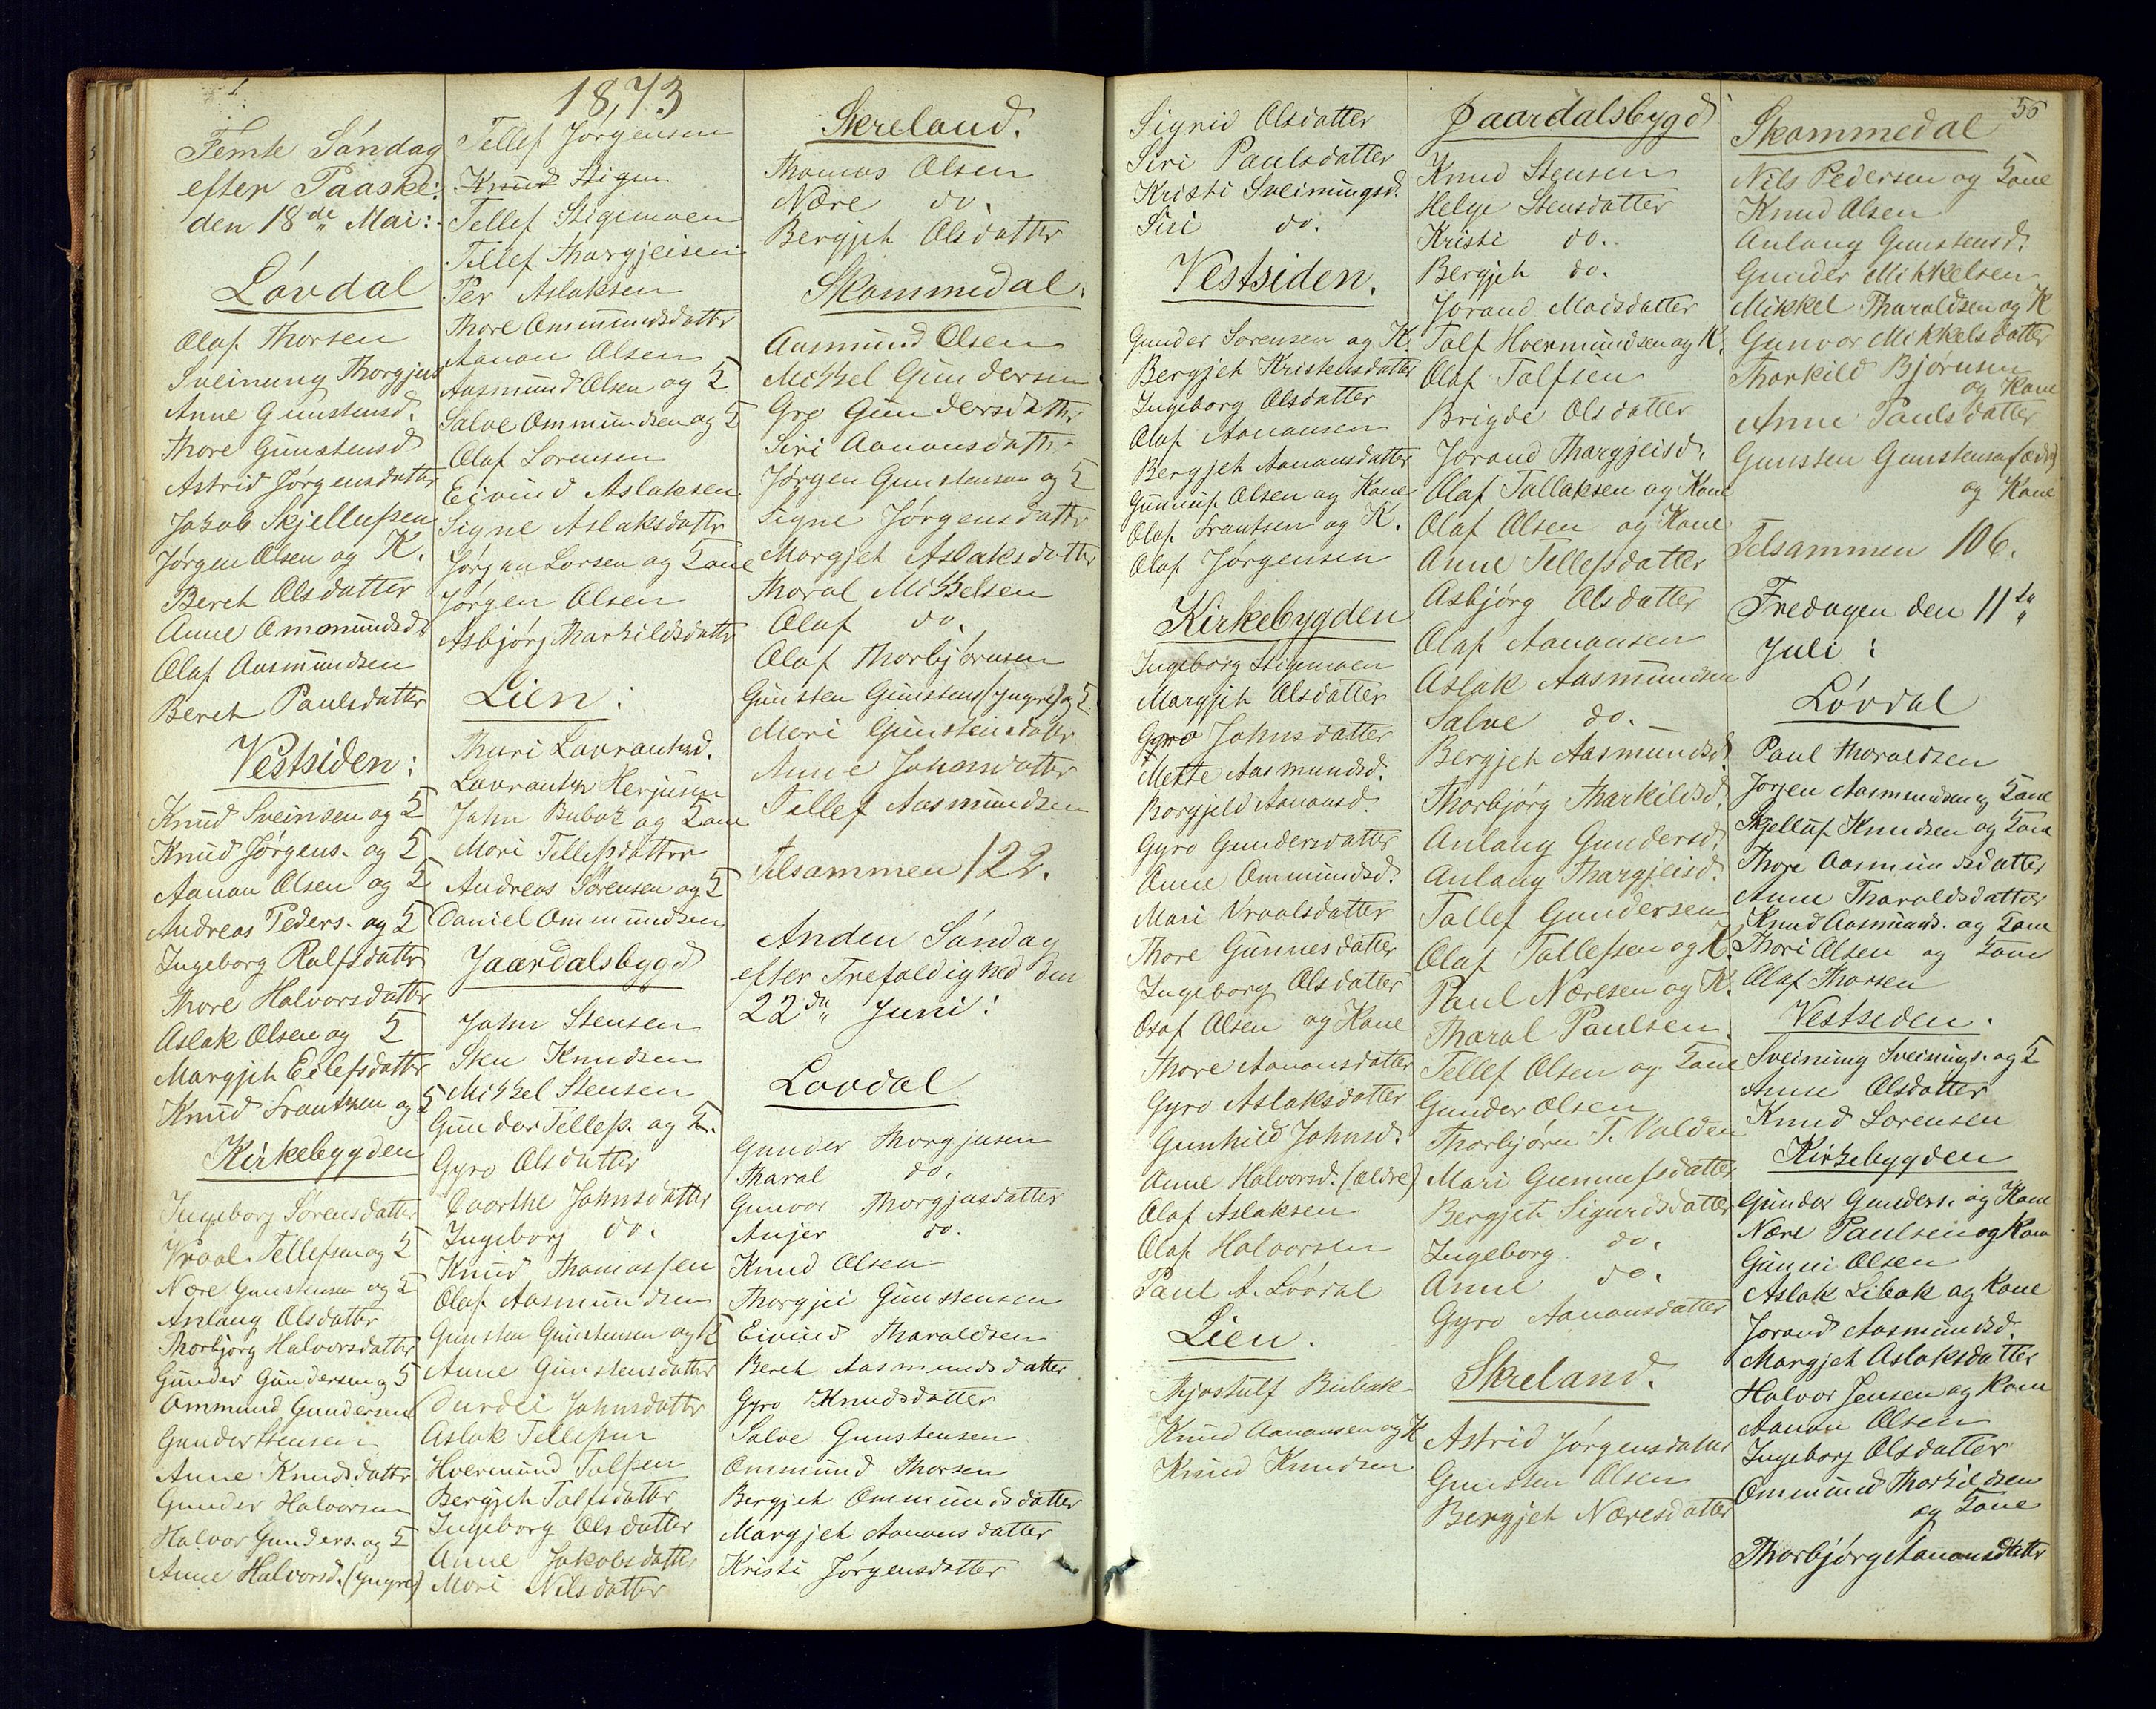 1873
Femte Søndag
efter Paaske:
den 18de Mai:
Løvdal
Olaf Thorsen
Sveinung Thorgjus
Anne Gunstensd.
Thore Gunstensd
Astrid Jørgensdatter
Jakob Skjellufsen
Jørgen Olsen og K.
Beret Olsdatter
Anne Ommundsd.
Olaf Aasmundsen
Beret Paulsdatter
Vestsiden:
Knud Sveinsen og K
Knud Jørgens. og K
Aanan Olsen og K
Andreas Peders. og K
Ingeborg Rolfsdatter
Thore Halvorsdatter
Aslak Olsen og K
Margjet Eilefsdatter
Knud Frantzen og K
Kirkebygden
Ingeborg Sørensdatter
Vraal Tellefsen og K
Nære Gunstensen og K
Anlaug Olsdatter
Thorbjørg Halvorsdatter
Gunder Gundersen og K
Ommund Gundersen
Gunder Stensen
Anne Knudsdatter
Gunder Halvorsen
Halvor Gunders. og K
Anne Halvorsd. (yngre)
Tellef Jørgensen
Knud Stigen
Tellef Stigemoen
Tellef Thorgjeisen
Per Aslaksen
Thore Ommundsdatter
Aanan Olsen
Aasmund Olsen og K
Salve Ommundsen og K
Olaf Sorensen
Eivind Aslaksen
Signe Aslaksdatter
Jørgen Larsen og Kone
Jørgen Olsen
Asbjørg Tharkildsdatter
Lien:
Thuri Lavrantsd.
Lavrants Herjusen
John Bubak og Kone
Mari Tellefsdatter
Andreas Sørensen og K
Daniel Ommundsen
Jaardalsbygd
John Stensen
Sten Knudsen
Mikkel Stensen
Gunder Tellefs. og K.
Gyro Olsdatter
Dorthe Johnsdatter
Ingeborg do.
Knud Thomassen
Olaf Aasmundsen
Gunsten Gunstensen og K
Anne Gunstensdatter
Durdei Johnsdatter
Aslak Tellefsen
Hvermund Talfsen
Bergjet Talfsdatter
Ingeborg Olsdatter
Anne Jakobsdatter
Mari Nilsdatter
Skreland.
Thomas Olsen
Nære do.
Bergjet Olsdatter
Skammedal:
Aasmund Olsen
Mikkel Gundersen
Gro Gundersdatter
Siri Aanansdatter
Jørgen Gunstensen og K
Signe Jørgensdatter
Margjet Aslaksdatter
Tharal Mikkelsen
Olaf do.
Olaf Thorbjørnsen
Gunsten Gunstens (yngre) og K.
Mari Gunstensdatter
Anne Johnsdatter
Tellef Aasmundsen
Tilsammen 122.
Anden Søndag
efter Trefoldighed den
22de Juni:
Lovdal
Gunder Thorgjusen
Tharal do.
Gunvor Thorgjusdatter
Anjer do.
Knud Olsen
Thorgjei Gunstensen
Eivind Tharaldsen
Beret Aasmundsdatter
Gyro Knudsdatter
Salve Gunstensen
Ommund Thorsen
Bergjet Ommundsdatter
Margjet Aanansdatter
Kristi Jørgensdatter
Signid Olsdatter
Siri Paulsdatter
Kristi Sveinungsd.
Siri do.
Vestsiden.
Gunder Sorensen og K.
Bergjet Kristensdatter
Ingeborg Olsdatter
Olaf Aanansen
Bergjet Aanansdatter
Gunnuf Olsen og Kone
Olaf Frantsen og K.
Olaf Jørgensen
Kirkebygden
Ingeborg Stigemoen
Margjet Olsdatter
Gyro Johnsdatter
Mette Aasmundsd.
Borgjeld Aanansd.
Gyro Gundersdatter
Anne Ommundsd.
Mari Vraalsdatter
Thore Gunnesdatter
Ingeborg Olsdatter
Olaf Olsen og Kone
Thore Aanansdatter
Gyro Aslaksdatter
Gunhild Johnsd.
Anne Halvorsd. (ældre)
Olaf Aslaksen
Olaf Halvorsen
Paul A. Løvdal
Lien.
Kjøstulf Bubak
Knud Aanansen og K
Knud Knudsen
Jaardalsbygd
Knud Stensen
Helge Stensdatter
Kristi do.
Bergjet do.
Jorand Madsdatter
Talf Hvermundsen og K.
Olaf Talfsen
Brigde Olsdatter
Jorand Thargjeisd.
Olaf Tallaksen og Kone
Olaf Olsen og Kone
Anne Tellefsdatter
Asbjørg Olsdatter
Olaf Aanansen
Aslak Aasmundsen
Salve do.
Bergjet Aasmundsd.
Thorbjørg Tharkildsd.
Anlaug Gundersd.
Anlaug Thargjeisd.
Tallef Gundersen
Olaf Tallefsen og K.
Paul Næresen og K.
Tharal Paulsen
Tellef Olsen og Kone
Gunder Olsen
Thorbjørn T. Valden
Mari Gunnufsdatter
Bergjet Sigurdsdatter
Ingeborg do.
Anne do.
Gyro Aanansdatter
Skreland.
Astrid Jørgensdatter
Gunsten Olsen
Bergjet Næresdatter
55
Skammedal
Nils Pedersen og Kone
Knud Olsen
Anlaug Gunstensd.
Gunder Mikkelsen
Mikkel Tharaldsen og K
Gunvor Mikkelsdatter
Tharkild Bjørnsen
og Kone
Anne Paulsdatter
Gunsten Gunstensen (ældre)
og Kone
Tilsammen 106.
Fredagen den 11te
Juli:
Løvdal
Paul Tharaldsen
Jørgen Aasmundsen og Kone
Skjelluf Knudsen og Kone
Thore Aasmundsdatter
Anne Tharaldsdatter
Knud Aasmunds. og Kone
Thori Olsen og Kone
Olaf Thorsen
Vestseden.
Sveinung Sveinungs. og K
Anne Olsdatter
Knud Sorensen
Kirkebygden
Gunder Gunders. og Kone
Nære Paulsen og Kone
Gunni Olsen
Aslak Libak og Kone
Jorand Aasmundsd.
Margjet Aslaksdatter
Halvor Jensen og Kone
Aanan Olsen
Ingeborg Olsdatter
Ommund Tharkildsen
og Kone
Thorbjørg Aanansdatter